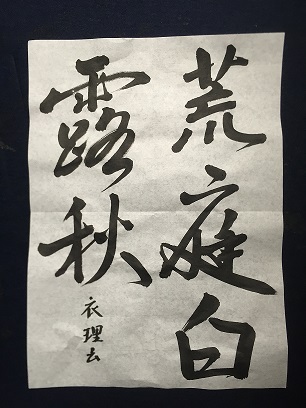 荒庭白
露秋
衣理云